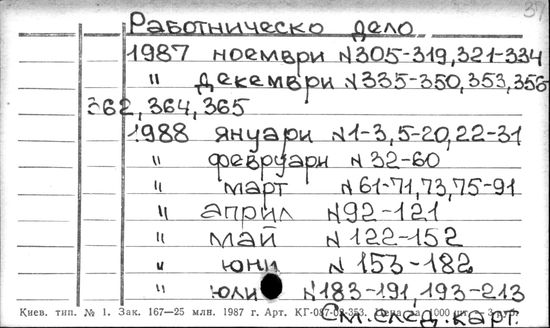 37
Работническо дело
1987 ноември N305-319,321-334
" декември N335-350,353,356-
362,364,365
1988 януари N1-3,5-20,22-31
" февруари N32-60
" март N61-71,73,75-91
" април N92-121
" май N122-152
" юни N153-182
" юли N183-191,193-213
Киев. тип. № 1. Зак. 167—25 млн. 1987 г. Арт. КГ-087-03-353. Цена за 1000 шт.
См. след. карт.